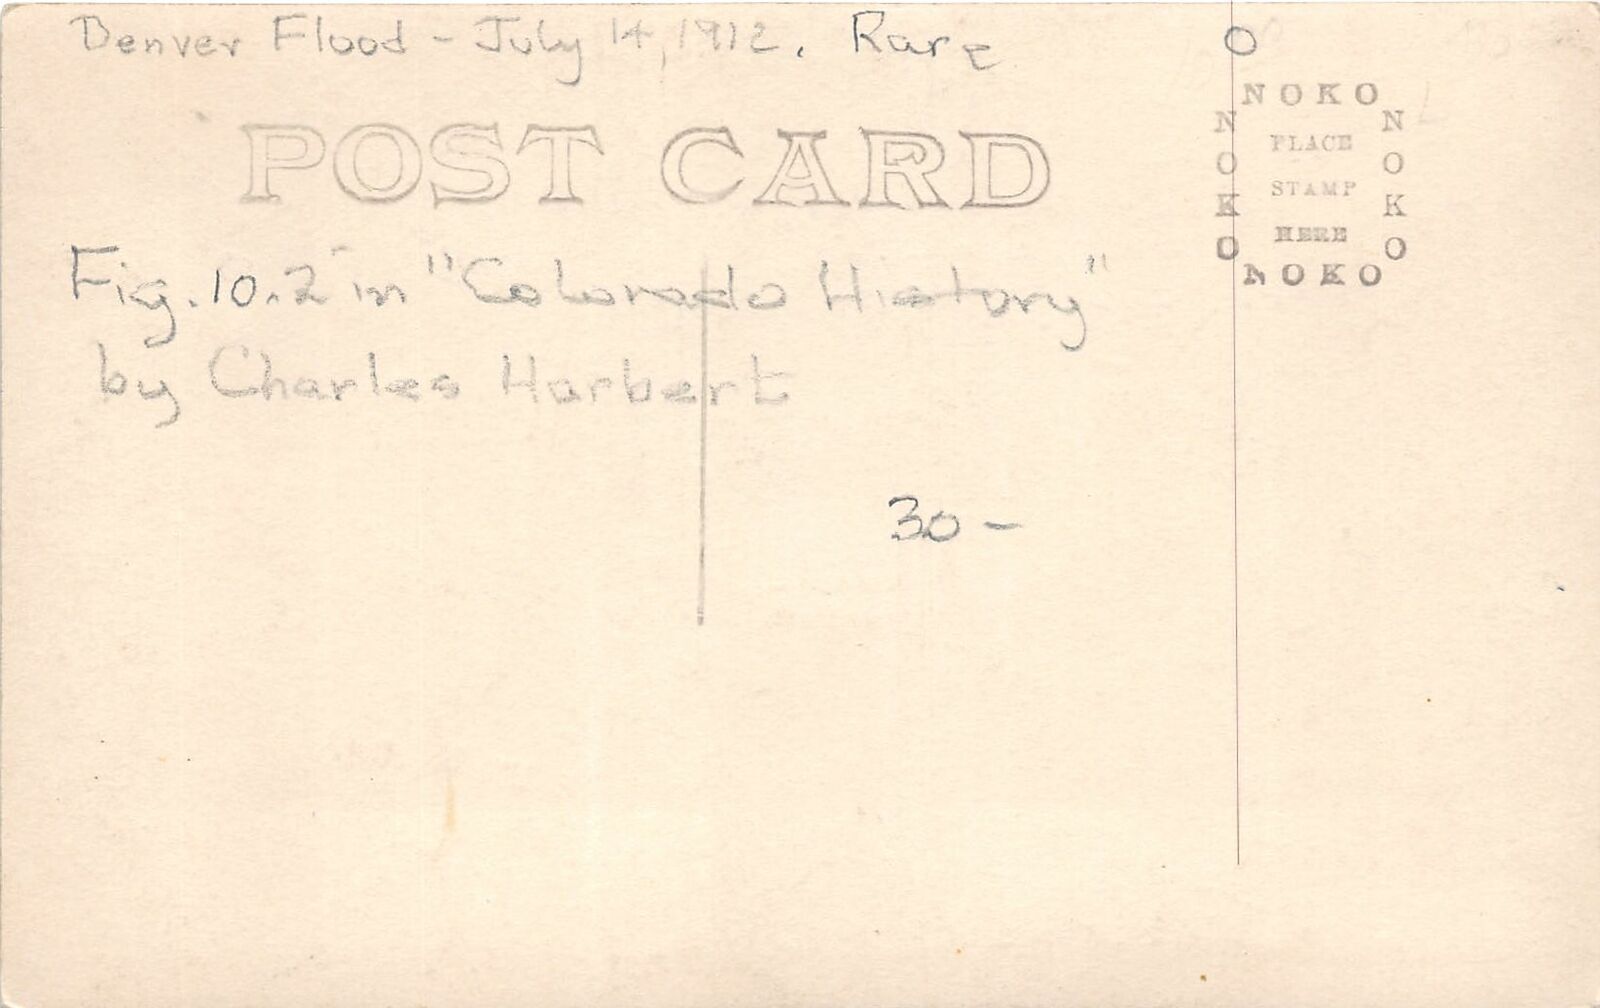 Denver Flood - July 14, 1912. Rare
O
POST CARD
NOKO
NOKO
NOKO
PLACE
STAMP
HERE
NOKO
Fig. 10.2 in "Colorado History"
by Charles Harbert
30 -